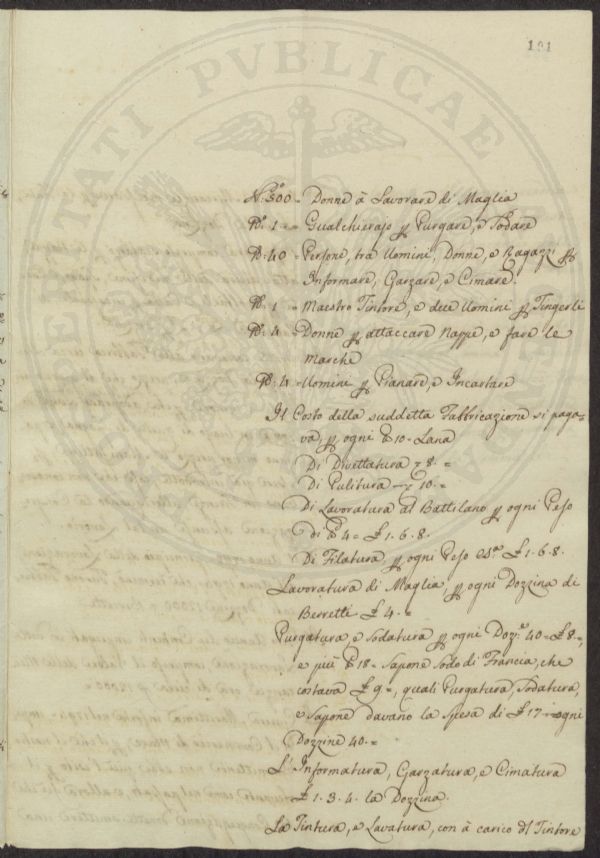 191
N.º 300 = Donne à Lavorare di Maglia
1 = Gualchierajo p Purgare, e Sodare
40 = Persone, tra Uomini, Donne, e Ragazzi p
Informare, Garzare, e Cimare.
1 = Maestro Tintore, e dece Uomini p Tingerli
4 = Donne p attaccare Nappe, e fare le
Marche
4 = Uomini p Pianare, e Incartare
Il Costo della suddetta Fabbricazione si paga=
va, p ogni 10 = Lana
Di Divettatura 8. =
Di Pulitura 10. =
Di Lavoratura al Battilano p ogni Peso
di 4 = £ 1. 6. 8.
Di Filatura p ogni Peso £ 1. 6. 8.
Lavoratura di Maglia, p ogni Dozzina di
Berretti £ 4. =
Purgatura, e Sodatura p ogni Dozz.e 40 = £ 8 =,
e più 18 = Sapone sodo di Francia, che
costava £ 9 =, quali Purgatura, Sodatura,
e Sapone davano la Spesa di £ 17 ogni
Dozzine 40. =
L'Informatura, Garzatura, e Cimatura
£ 1. 3. 4. la Dozzina.
La Tintura, e Lavatura, con à carico dl Tintore
PVBLICAE